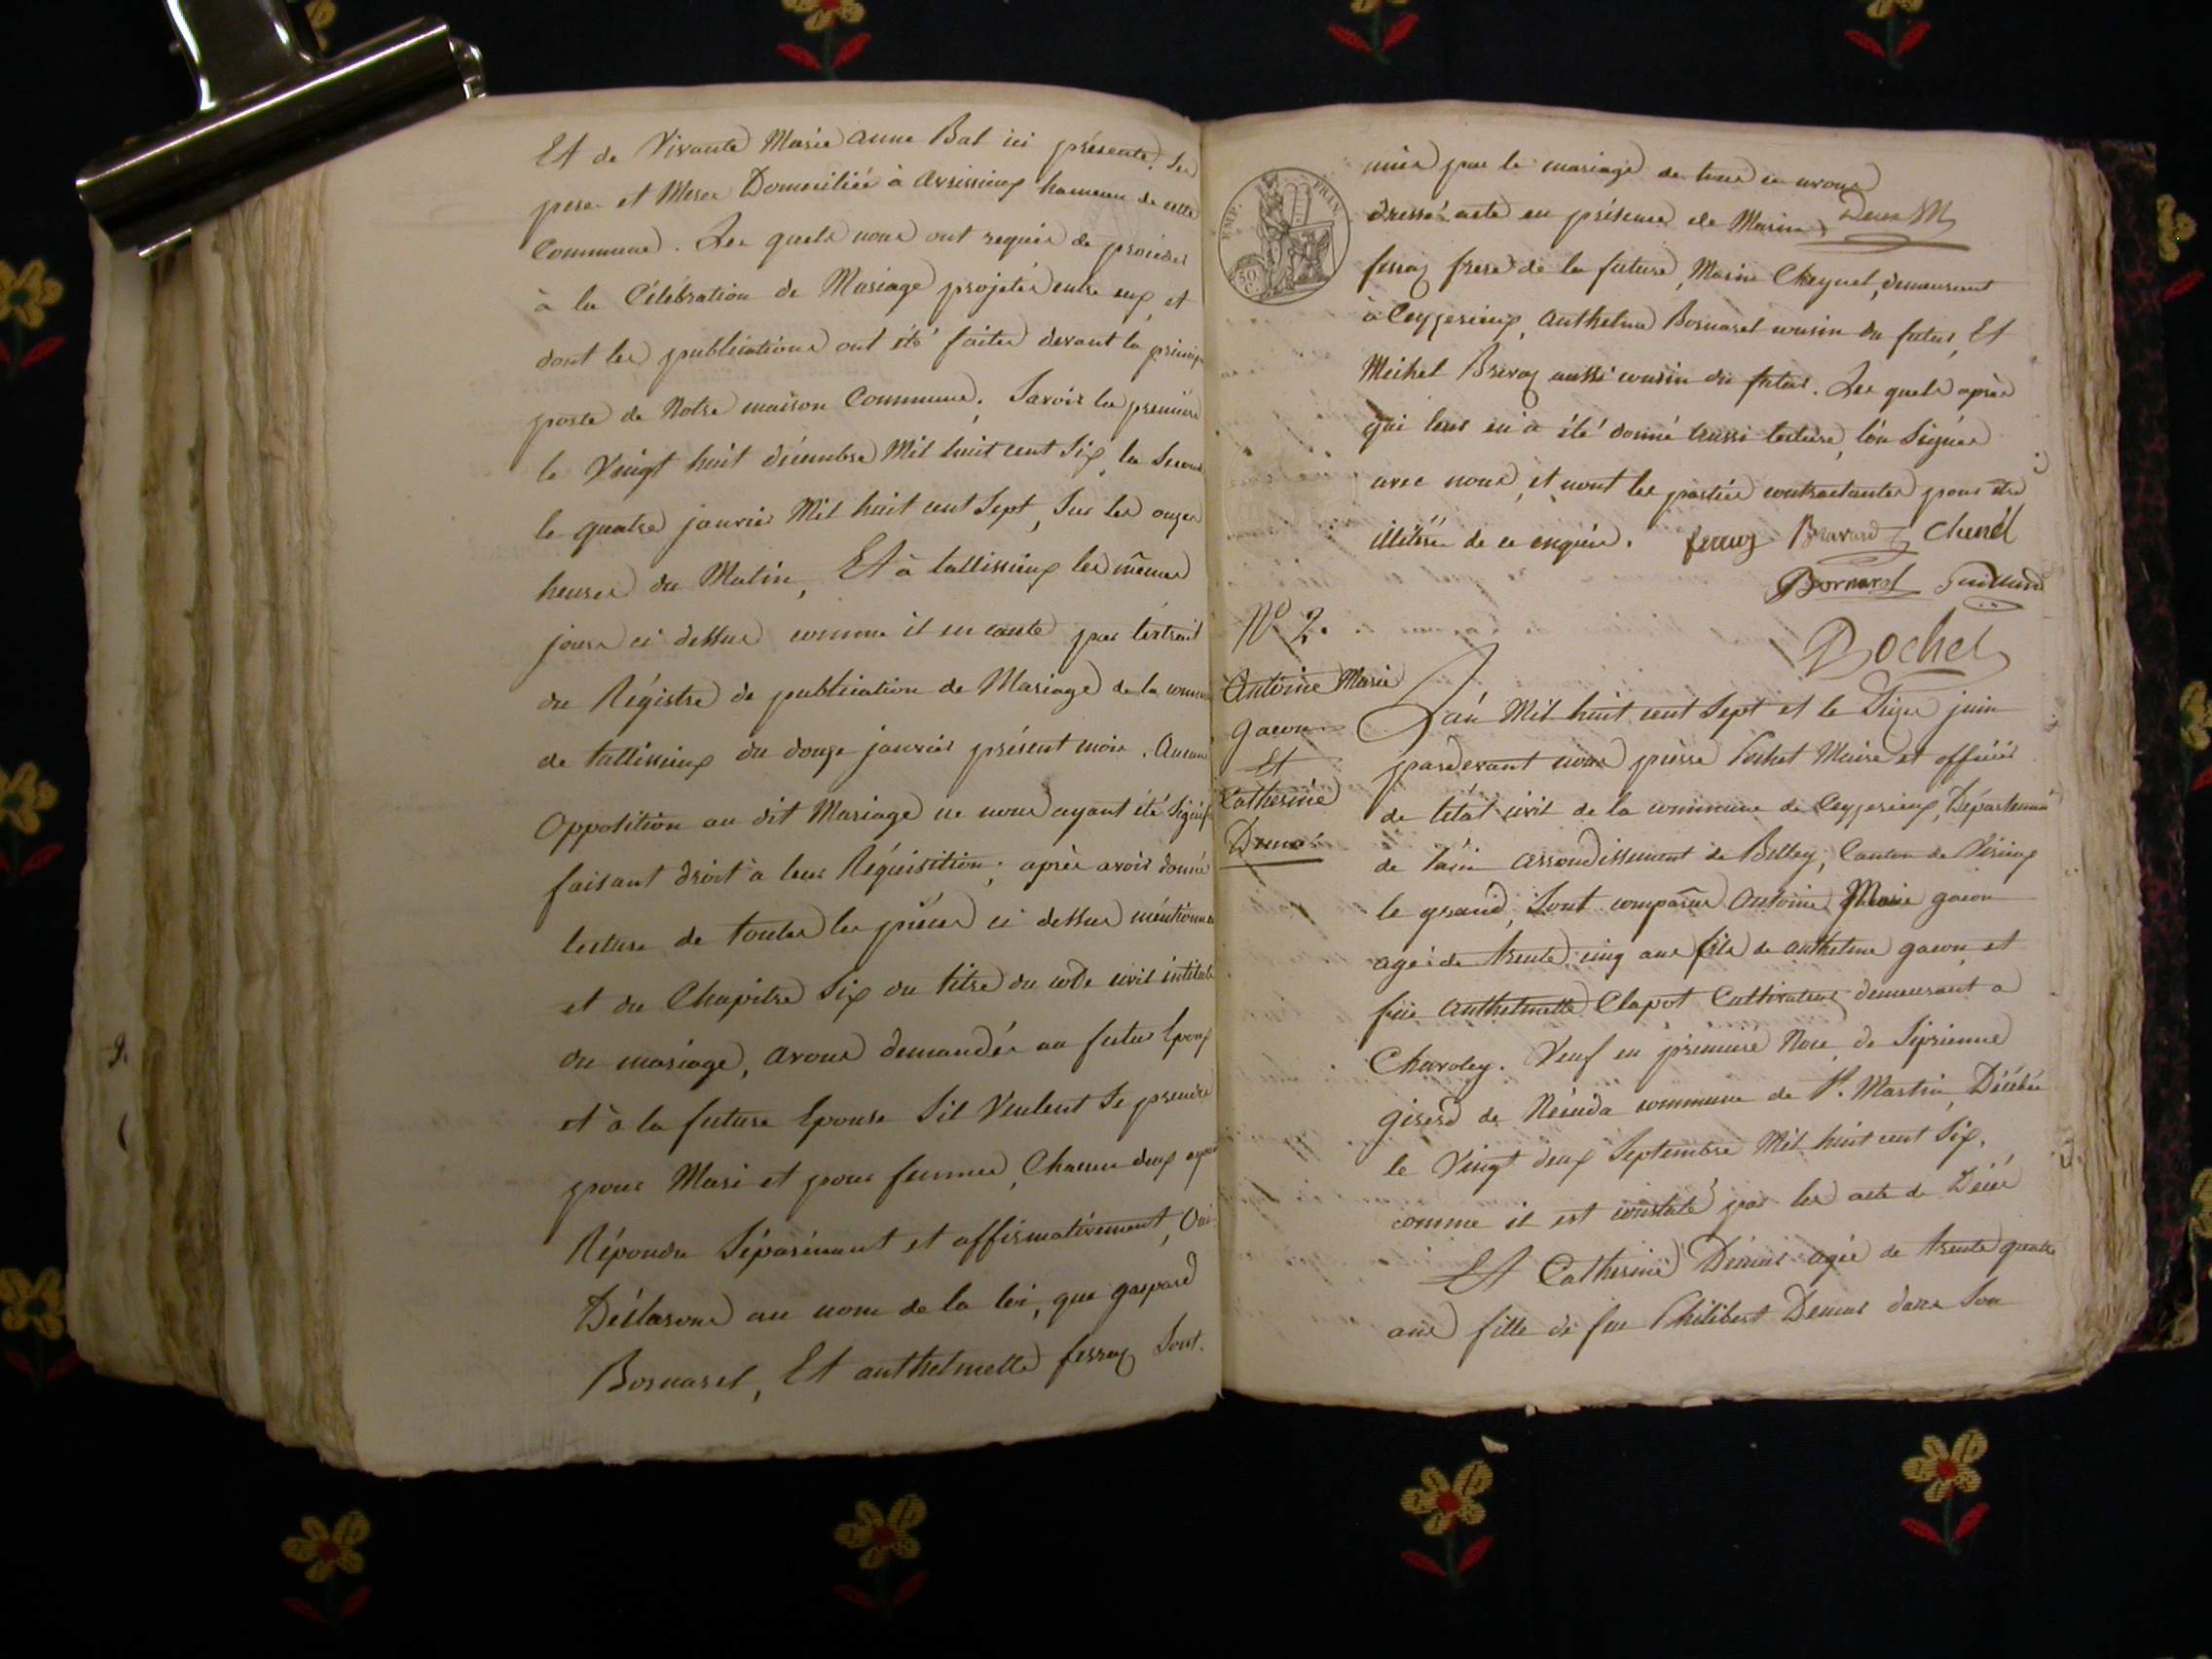 Et de Vivante Marie anne Bal ici présente. Ses
pere et Mere Domiciliée à Avrissieux hameau de cette
Commune. Les quels nous ont requis de procéder
à la Célébration de Mariage projetés entre eux, et
dont les publications ont été faites devant la principe
porte de Notre maison Commune. Savoir la premiere
le Vingt huit décembre Mil huit cent Six, la Second
le quatre janvier Mil huit cent Sept, Sur les onze
heures du Matin, Et à tallissieux les mêmes
jours ci dessus comme il en conste par l'extrait
du Régistre de publication de Mariage de la commune
de tallissieux du douze janvier présent mois. Aucune
Opposition au dit Mariage ne nous ayant été Signif
faisant droit à leur Réquisition; après avoir donné
lecture de toutes les pièces ci dessus mentionnée
et du Chapitre Six du titre du code civil intitulé
du mariage, avons demandés au futur Epoux
et à la future Epouse S'il Veulent Se prendre
pour Mari et pour femme, Chacun deux ayant
Répondu Séparément et affirmativement, Oui
Déclarons au nom de la loi, que gaspard
Bornarel, Et anthelmette ferraz Sont.
EMP. FRAN.
50 C.
unis par le mariage de tous ce avons
dressé acte en présence de Marin
ferraz frere de la future, Marin Cheynel, demeurant
à Ceyzerieux, Anthelme Bornarel cousin du futur, Et
Michel Bravaz aussi cousin du futur. Les quels après
qui leur en a été donné aussi lecture, l'on Signés
avec nous, et nont les parties contractantes pour être
illétérée de ce enquis. ferraz Bravard Chenel
Bornarel
Rochet
N° 2.
Antoine Marie
gacon
Et
Catherine
L'an Mil huit cent Sept et le Seize juin
pardevant nous pierre Rochet Maire et officier
de l'état civil de la commune de Ceyzerieux, Département
de l'ain arrondissement de Belley, Canton de Virieux
le grand, Sont comparus Antoine Marie gacon
agé de trente cinq ans fils de anthelme gacon, et
feue anthelmette Clapot Cultivateur demeurant a
Charoley. Veuf en première Noce de Siprienne
girerd de commune de St. Martin, Décédée
le Vingt deux Septembre Mil huit cent Six.
comme il est constaté par les acte de Décès
Et Catherine agée de trente quatre
ans fille de feu Philibert dans Son